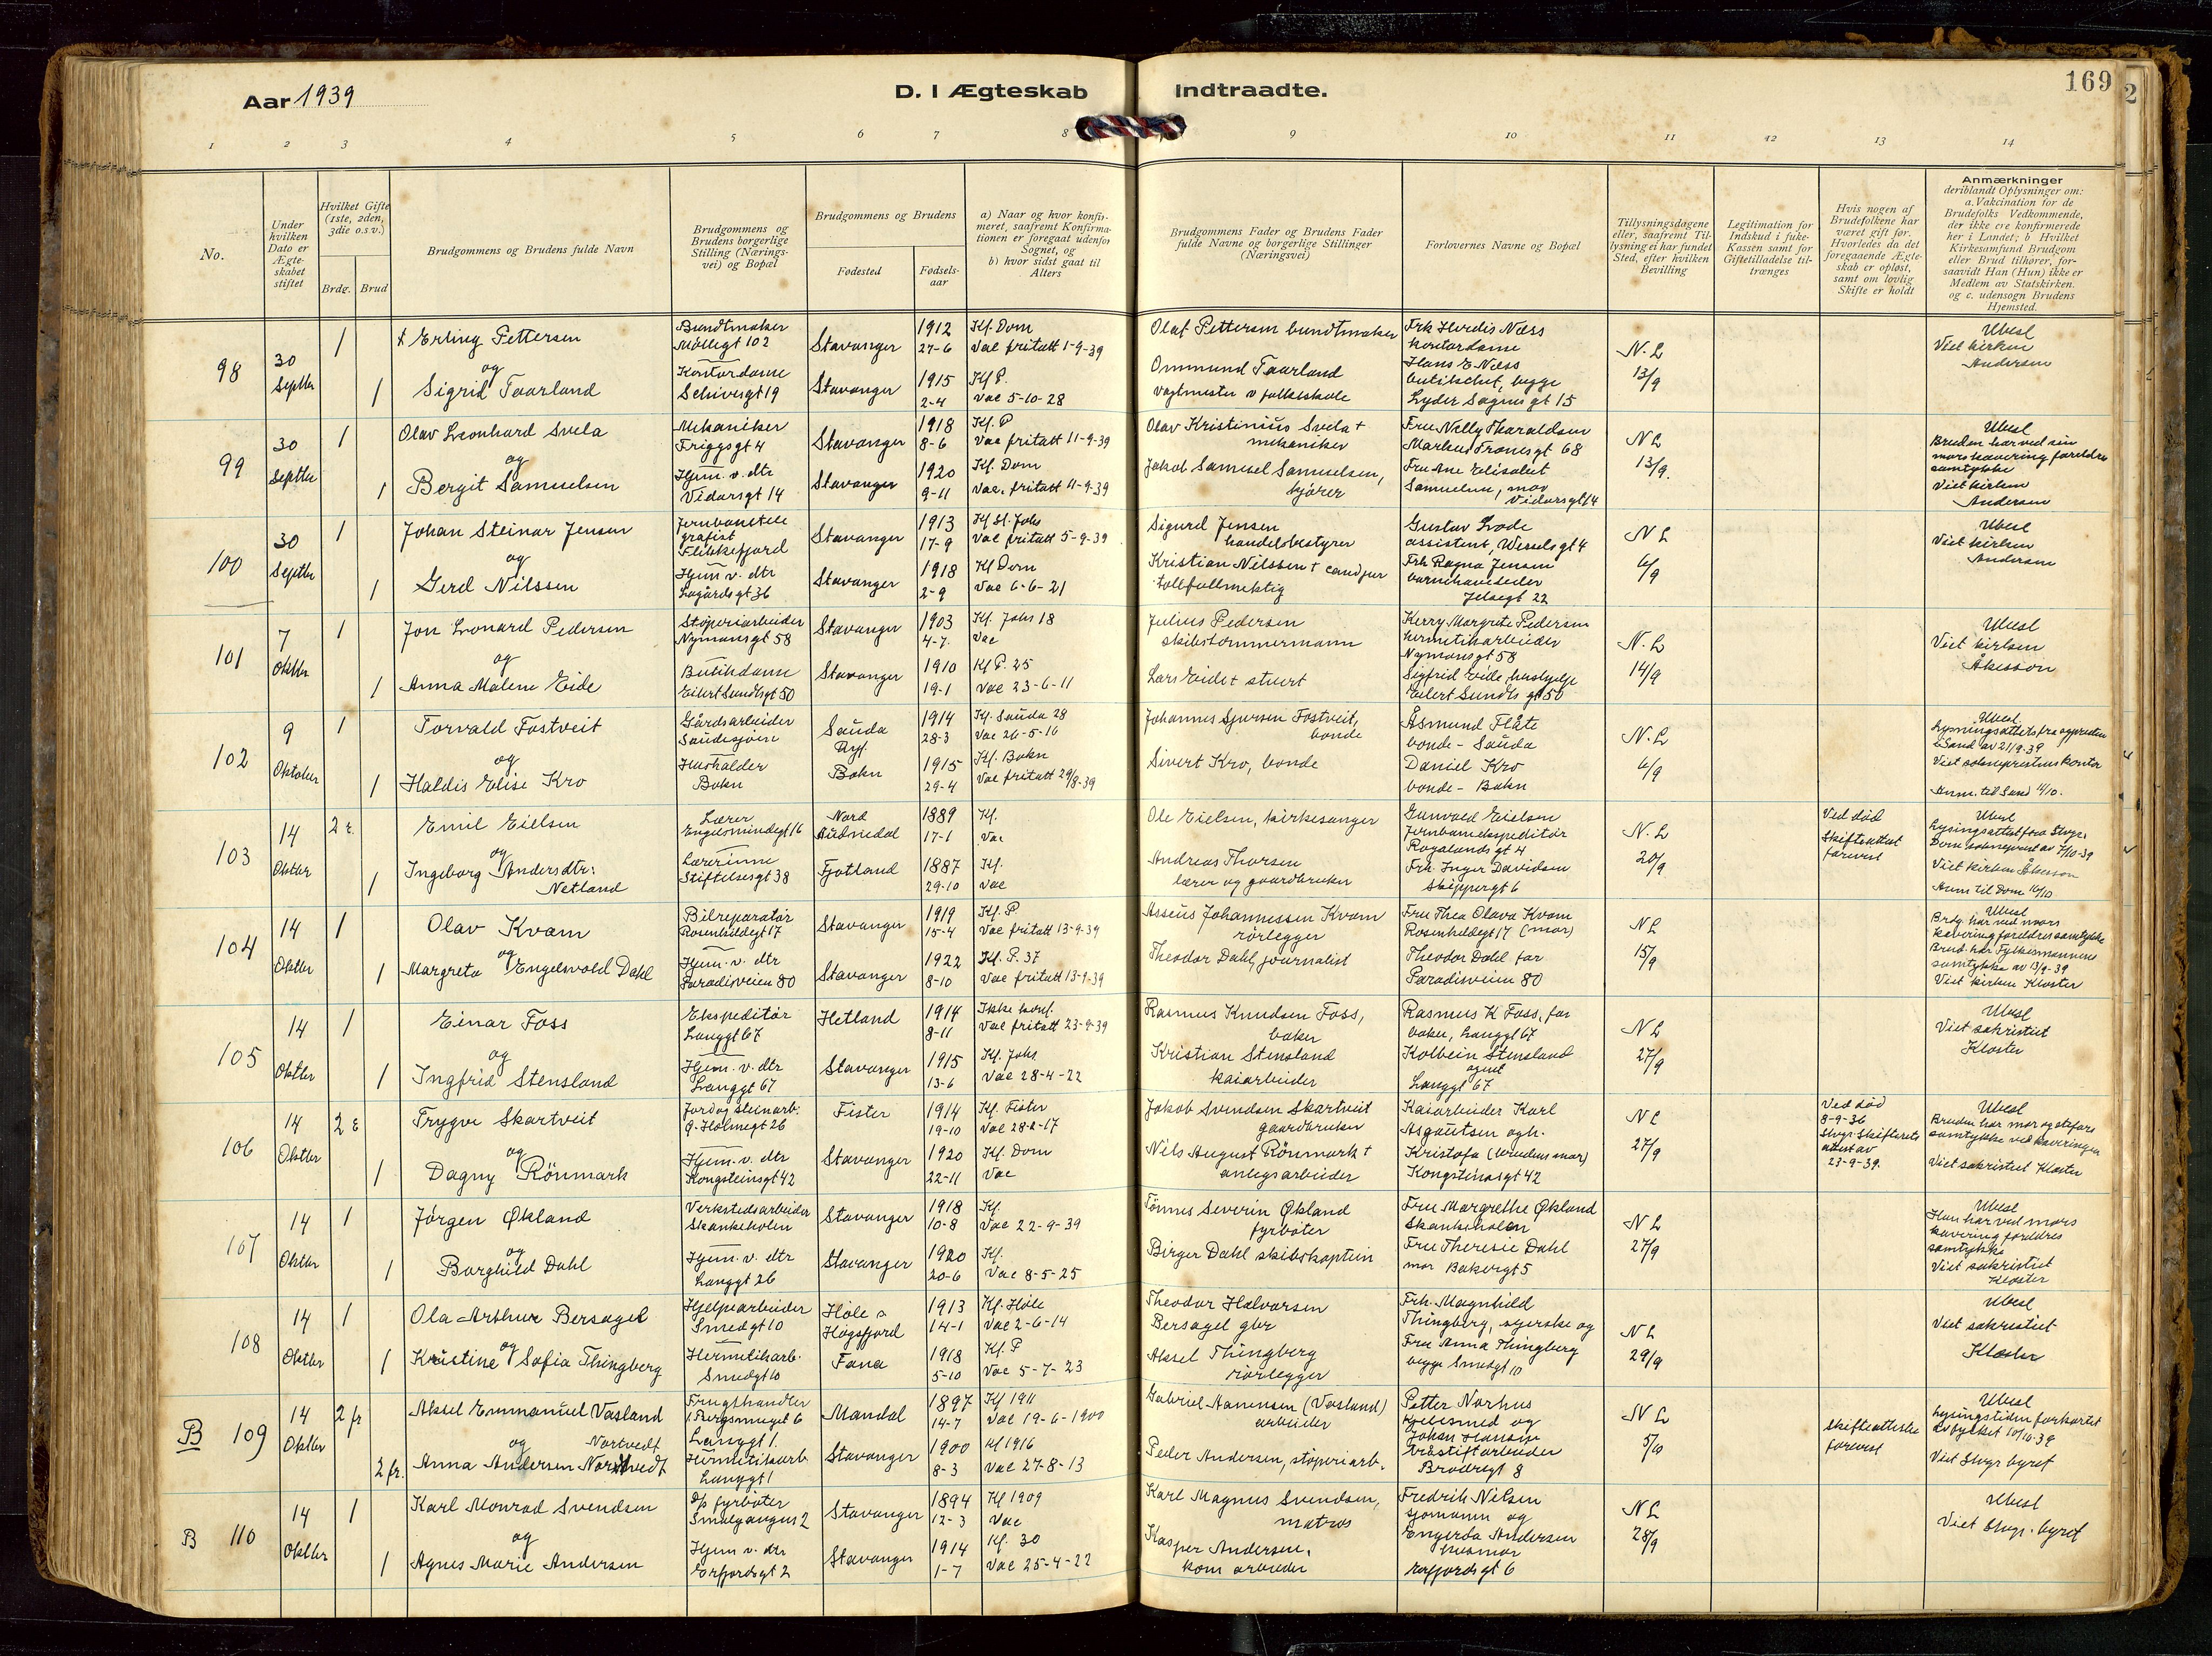 Aar 1939
D. I Ægteskab Indtraadte.
169
2
1 2 3 4 5 6 7 8 9 10 11 12 13 14
No.
Under hvilken Dato er Ægteskabet stiftet
Hvilket Gifte (1ste, 2den, 3die o.s.v.)
Brdg. Brud
Brudgommens og Brudens fulde Navn
Brudgommens og Brudens borgerlige Stilling (Næringsvei) og Bopæl
Brudgommens og Brudens
Fødested
Fødselsaar
a) Naar og hvor konfirmeret, saafremt Konfirmationen er foregaat udenfor Sognet, og
b) hvor sidst gaat til Alters
Brudgommens Fader og Brudens Fader fulde Navne og borgerlige Stillinger (Næringsvei)
Forlovernes Navne og Bopæl
Tillysningsdagene eller, saafremt Tillysning ei har fundet Sted, efter hvilken Bevilling
Legitimation for Indskud i Enke-Kassen samt for Giftetilladelse tiltrænges
Hvis nogen af Brudefolkene har været gift før. Hvorledes da det foregaaende Ægteskab er opløst, samt om lovlig Skifte er holdt
Anmærkninger
deriblandt Oplysninger om: a. Vakcination for de Brudefolks Vedkommende, der ikke ere konfirmerede her i Landet; b Hvilket Kirkesamfund Brudgom eller Brud tilhører, forsaavidt Han (Hun) ikke er Medlem av Statskirken. og c. udensogn Brudens Hjemsted.
98
30 Septbr
1
Erling Pettersen
Bundtmaker
Møllegt 102
Stavanger
1912
27-6
Kf. Dom
Vac fritatt 1-9-39
Olaf Pettersen bundtmaker
Frk Herdis Næss
kontordame
N.L
13/9
Ubesl
Viet kirken
Andersen
og
1
Sigrid Taarland
Kontordame
Schivesgt 19
Stavanger
1915
2-4
Kf P.
Vac 5-10-28
Ommund Taarland
vagtmester v folkeskole
Hans E Næss
butikchef, begge
Lyder Sagens gt 15
99
30 Septbr
1
Olav Leonhard Svela
Mekaniker
Friggsgt 4
Stavanger
1918
8-6
Kf. P
Vac fritatt 11-9-39
Olav Kristinius Svela +
mekaniker
Fru Nelly Tharaldsen
Markus Tranesgt 68
N L
13/9.
Ubesl
Bruden har ved sin
mors kavering foreldres
samtykke
Viet kirken
Andersen
og
1
Bergit Samuelsen
Hjem. v. dtr
Vidarsgt 14
Stavanger
1920
9-11
Kf. Dom
Vac. fritatt 11-9-39
Jakob Samuel Samuelsen,
kjører
Fru Ane Elisabet
Samuelsen, mor
Vidarsgt 14
100
30 Septbr
1
Johan Steinar Jensen
Jernbanetele
grafist
Flekkefjord
Stavanger
1913
17-9
Kf St. Johs
Vac fritatt 5-9-39
Sigurd Jensen
handelsbestyrer
Gustav Lode
assistent, Wesselsgt 4
N L
6/9
Ubesl
Viet kirken
Andersen
og
1
Gerd Nilssen
Hjem v. dtr
Lagårdsgt 36
Stavanger
1918
2-9
Kf Dom
Vac 6-6-21
Kristian Nilssen + cand jur
tollfullmektig
Frk Ragna Jensen
barnehaveleder
Jelsegt 22
101
7 Oktbr
1
Jon Leonard Pedersen
Støperiarbeider
Nymansgt 58
Stavanger
1903
4-7
Kf. Johs 18
Vac
Julius Pedersen
skibstømmermann
Kerry Margrete Pedersen
hermetikarbeider
Nymansgt 58
N. L
14/9
Ubesl
Viet kirken
Åkesson
og
1
Anna Malene Eide
Butikdame
Eilert Sundtsgt 50
Stavanger
1910
19-1
Kf P. 25
Vac 23-6-11
Lars Eide + stuert
Sigfrid Eide, hushjelp
Eilert Sundts gt 50
102
9 Oktober
1
Torvald Fostveit
Gårdsarbeider
Saudasjøen
Sauda
Ryf.
1914
28-3
Kf. Sauda 28
Vac 26-5-16
Johannes Sjursen Fostveit,
bonde
Åsmund Flåte
bonde - Sauda
N. L
6/9
Ubesl.
Lysningsattest fra sogneprestен
i Sand av 21/9-39
Viet sokneprestens kontor
Anm. til Sand 11/10.
og
1
Haldis Elise Kro
Husholder
Bokn
Bokn
1915
29-4
Kf. Bokn
Vac fritatt 29/8-39
Sivert Kro, bonde
Daniel Kro
bonde - Bokn
103
14 Oktbr
2 e.
Emil Eielsen
Lærer
Engelsmindegt 16
Nord
Audnedal
1889
17-1
Kf.
Vac
Ole Eielsen, kirkesanger
Gunvald Eielsen
jernbaneekspeditør
Rogalands gt 4
N. L
20/9
Ved død
Skifteattest
forevist
Ubesl
Lysingsattest fra Stvgr.
Dom sokneprest av 7/10-39
Viet kirken Åkesson
Anm til Dom 16/10
og
1
Ingeborg Andersdtr:
Netland
Lærerinne
Stiftelsesgt 38
Fjotland
1887
29-10
Kf.
Vac
Andreas Thorsen
lærer og gaardbruker
Frk. Inger Davidsen
Skippergt 6
104
14 Oktbr
1
Olav Kvam
Bilreparatør
Rosenhildegt 17
Stavanger
1919
15-4
Kf. P
Vac fritatt 13-9-39
Asseus Johannessen Kvam
rørlegger
Fru Thea Olava Kvam
Rosenhildegt 17 (mor)
N L
15/9
Ubesl
Brdg. har ved mors
kavering foreldres samtykke
Brud. har Fylkesmannens
samtykke av 13/9-39
Viet kirken Kloster
og
1
Margreta Engelvold Dahl
Hjem. v. dtr
Paradisveien 80
Stavanger
1922
8-10
Kf. P. 37
Vac fritatt 13-9-39
Theodor Dahl, journalist
Theodor Dahl far
Paradisveien 80
105
14 Oktbr
1
Einar Foss
Ekspeditør
Langgt 67
Hetland
1914
8-11
Ikke konf.
Vac fritatt 23-9-39
Rasmus Knudsen Foss,
baker
Rasmus K Foss, far
baker, Langgt 67
N L
27/9
Ubesl
Viet sakristiet
Kloster
og
1
Ingfrid Stensland
Hjem. v. dtr
Langgt 67
Stavanger
1915
13-6
Kf. Johs
Vac 28-4-22
Kristian Stensland
kaiarbeider
Kolbein Stensland
agent
Langgt 67
106
14 Oktbr
2 e
Trygve Skartveit
Jord og steinarb.
G. Holmegt 26
Fister
1914
19-10
Kf. Fister
Vac 28-2-17
Jakob Svendsen Skartveit
gaardbruker
Kaiarbeider Karl
Asgautsen og h.
N L
27/9
Ved død
8-9-36
Stvgr Skifteretts
attest av
23-9-39.
Ubesl
Bruden har mor og stefars
samtykke ved kaveringen
Viet sakristiet Kloster
og
1
Dagny Rönmark
Hjem. v. dtr
Kongsteinsgt 42
Stavanger
1920
22-11
Kf. Dom
Vac
Nils August Rönmark +
anlegsarbeider
Kristofa (brudens mor)
Kongsteinsgt 42
107
14 Oktbr
1
Jørgen Økland
Verkstedsarbeider
Skankeholen
Stavanger
1918
10-8
Kf.
Vac 22-9-39
Tönnes Severin Økland
fyrbøter
Fru Margrethe Økland
Skankeholen
N L
27/9
Ubesl
Hun har ved mors
kavering foreldres
samtykke
Viet sakristiet
Kloster
og
1
Borghild Dahl
Hjem. v. dtr
Langgt 26
Stavanger
1920
20-6
Kf.
Vac 8-5-25
Birger Dahl skibskaptein
Fru Theresie Dahl
mor Bakergt 5
108
14 Oktbr
1
Ola Arthur Bersagel
Hjelpearbeider
Smedgt 10
Høle i
Høgsfjord
1913
14-1
Kf. Høle
Vac 2-6-14
Theodor Halvorsen
Bersagel gbr
Frk. Magnhild
Thingberg, syerske og
N L
29/9
Ubesl
Viet sakristiet
Kloster
og
1
Kristine Sofia Thingberg
Hermetikarb.
Smedgt 10
Fana
1918
5-10
Kf. P
Vac 5-7-23
Aksel Thingberg
rörlegger
Fru Anna Thingberg
begge Smedgt 10
B 109
14 Oktbr
2 fr
Aksel Emmanuel Vasland
Frugthandler
Bergsmuget 6
Langgt 1.
Mandal
1897
14-7
Kf 1911
Vac 19-6-1900
Gabriel Aanensen (Vasland)
arbeider
Petter Norhus
og
Johan Hansen
N L
5/10
Skifteatteste
forevist
Ubesl
Lysingstiden forkortet
av fylket 10/10-39
Viet Stvgr byret
og Nortvedt
2 fr.
Anna Andersen Nortvedt
Hermetikarb
Langgt 1
Stavanger
1900
8-3
Kf 1916
Vac 27-8-13
Peder Andersen, støperiarb.
tråstiftarbeider
Brødregt 8
B 110
14 Oktbr
1
Karl Monrad Svendsen
D/s fyrbøter
Smalgangen 2
Stavanger
1894
12-3
Kf 1909
Vac
Karl Magnus Svendsen,
matros
Fredrik Nilsen
sjømann og
N L
28/9
Ubesl
Viet Stvgr. byret
og
1
Agnes Marie Andersen
Hjem v. dtr
Erfjordsgt 2
Stavanger
1914
1-7
Kf. 30
Vac 25-4-22
Kasper Andersen,
kom arbeider
Engerda Andersen
husmor
Erfjordsgt 6